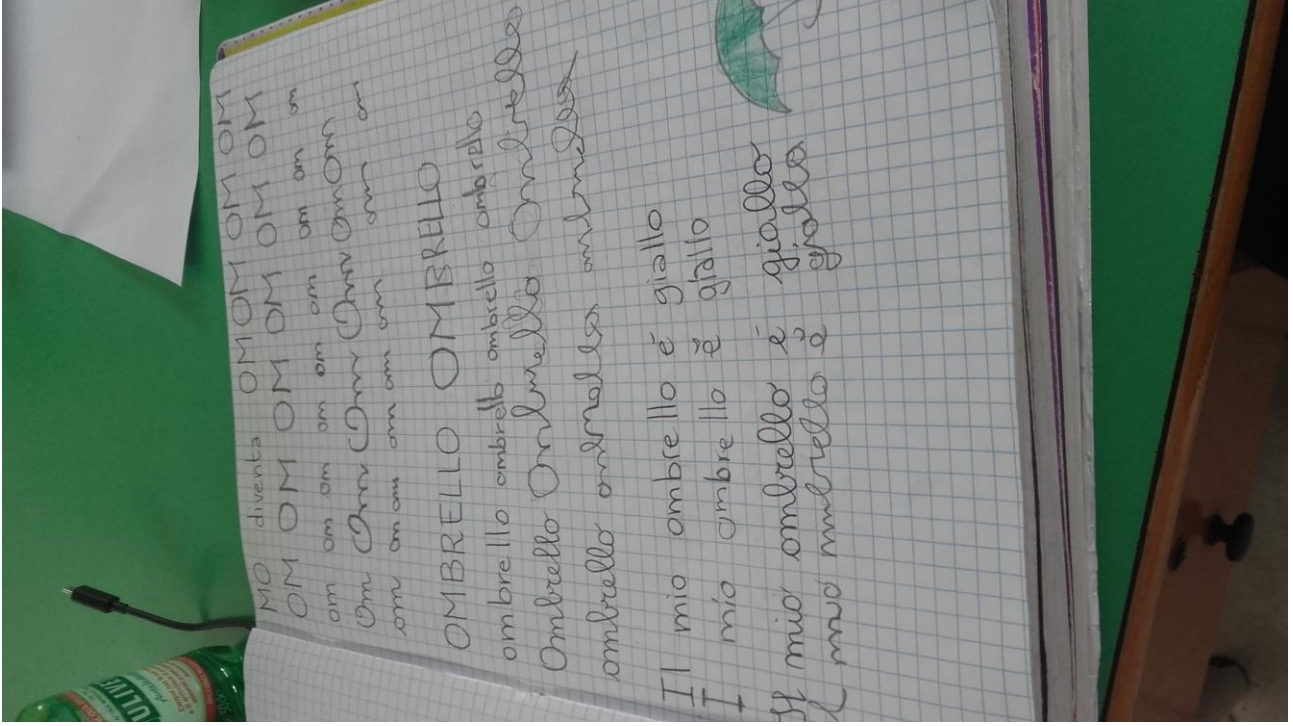 MO diventa OM OM OM OM OM
OM OM OM OM OM OM OM
om om om om om om om om
Om Om Om Om Om Om
om om om om om om om om
OMBRELLO OMBRELLO
ombrello ombrello ombrello ombrello
Ombrello Ombrello Ombrello
ombrello
Il mio ombrello è giallo
I mio ombrello è giallo
Il mio ombrello è giallo
mio è giallo
ULIVE